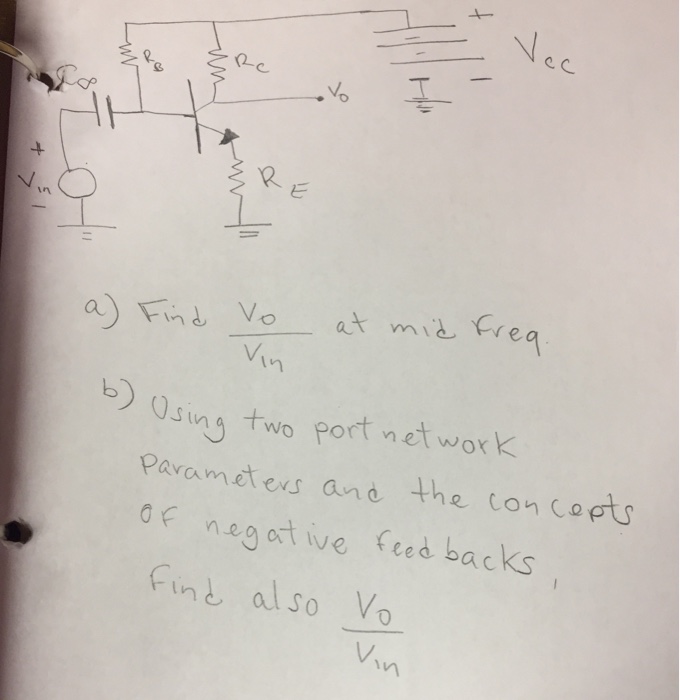 +
R_B
R_C
V_cc
C∞
V_o
-
+
V_in
-
R_E
a) Find V_o/V_in at mid freq.
b) Using two port network
parameters and the concepts
of negative feedbacks,
find also V_o/V_in